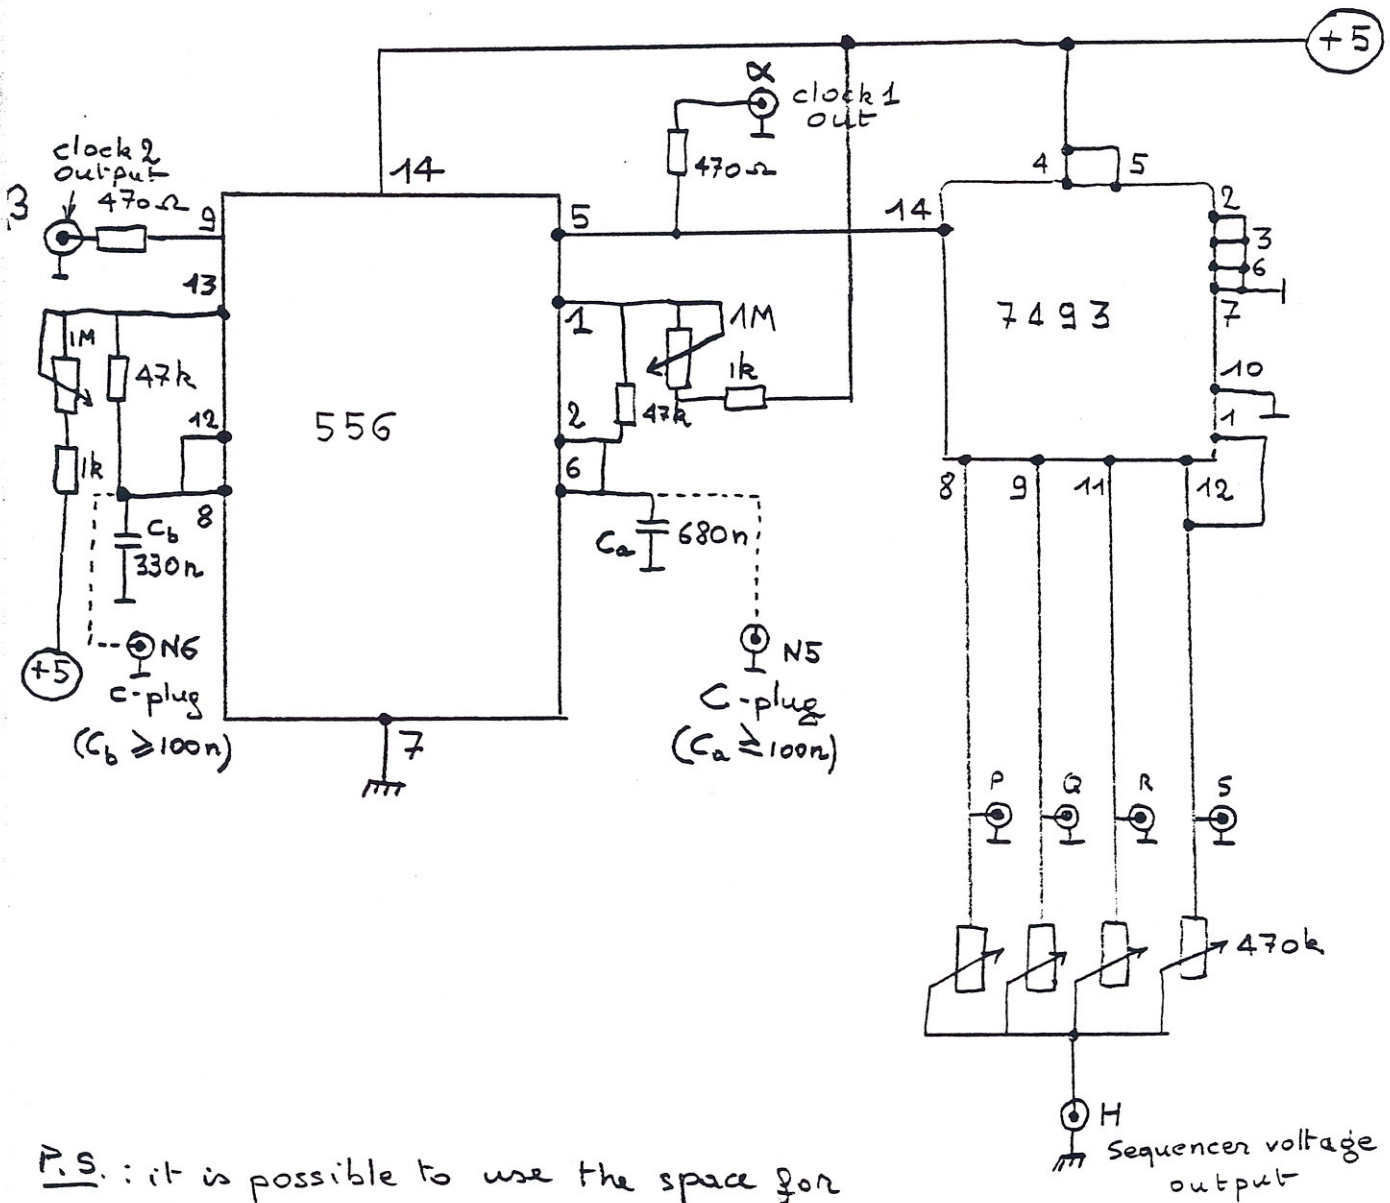 +5
α
clock 1
out
470Ω
clock 2
output
β
470Ω
9
14
5
14
4
5
2
3
6
7
10
1
13
1
1M
1k
47k
2
6
1M
47k
12
1k
8
556
7493
Cb
330n
Ca
680n
8
9
11
12
N6
C-plug
(Cb ⩾100n)
+5
N5
C-plug
(Ca ⩾100n)
7
P
Q
R
S
470k
H
Sequencer voltage
output
P.S. : it is possible to use the space for